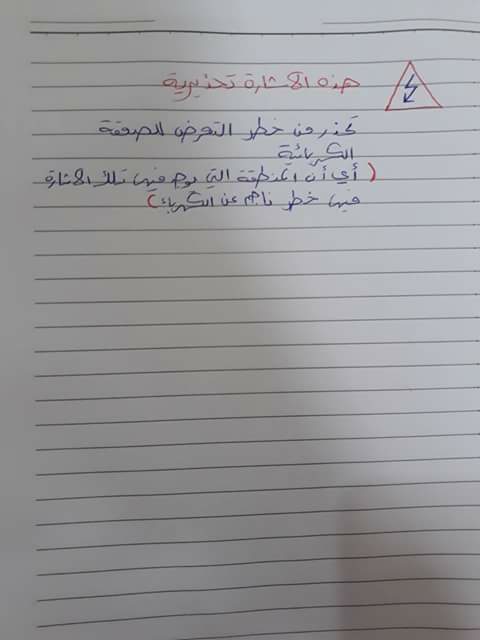 هذه الاشارة تحذيرية
تحذر من خطر التعرض للصعقة
الكهربائية
(أي أن المنطقة التي يوجد فيها تلك الاشارة
فيها خطر ناجم عن الكهرباء)